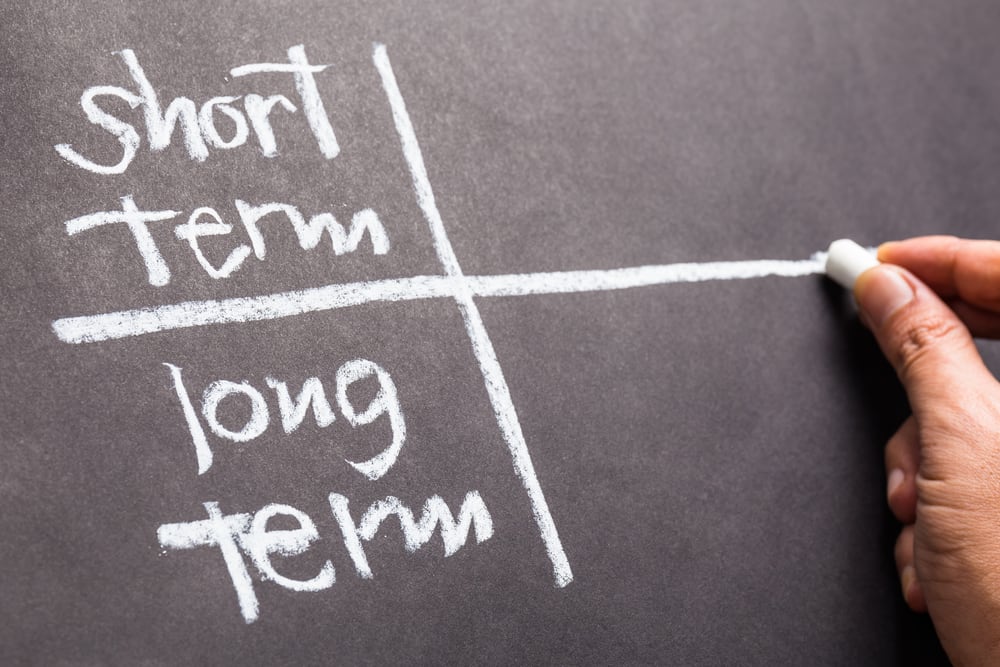 short
term
long
term